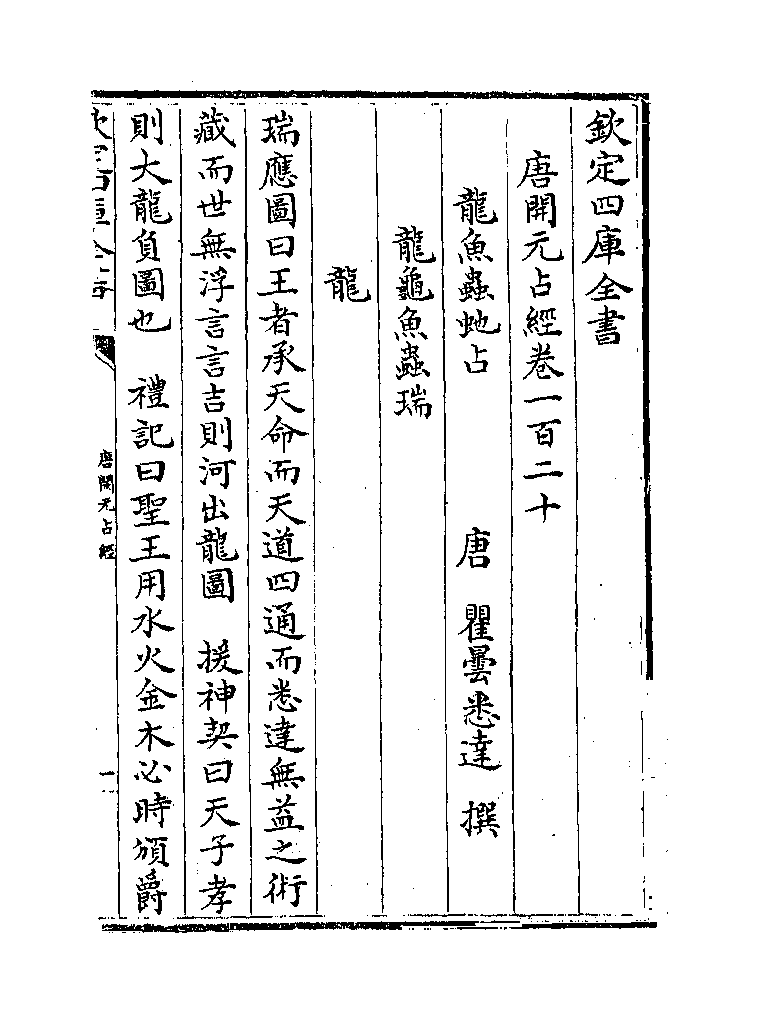 欽定四庫全書
唐開元占經卷一百二十
唐 瞿曇悉達 撰
龍魚蟲虵占
龍龜魚蟲瑞
龍
瑞應圖曰王者承天命而天道四通而悉達無益之術
藏而世無浮言言吉則河出龍圖 援神契曰天子孝
則大龍負圖也 禮記曰聖王用水火金木必時頒爵
欽定四庫全書
唐開元占經
一